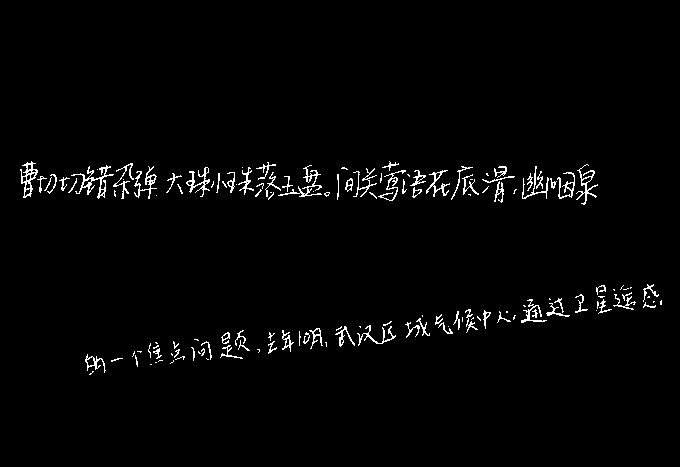 曹切切错杂弹大珠小珠落玉盘。间关莺语花底滑,幽咽泉
的一个焦点问题,去年10月,武汉区域气候中心,通过卫星遥感